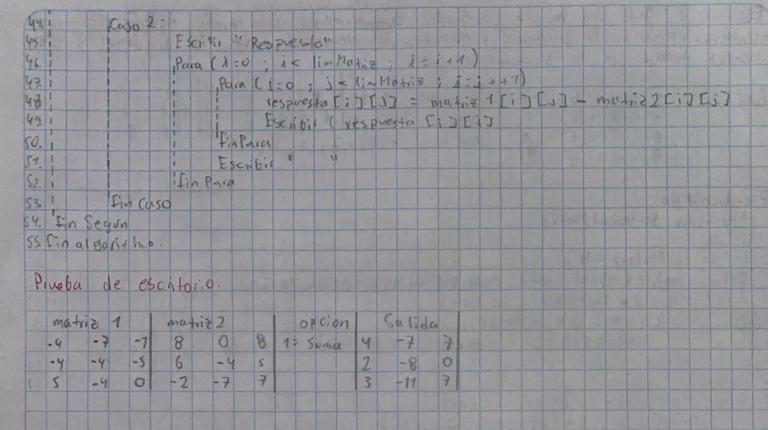 44. Caso 2:
45. Escribir "Respuesta"
46. Para (i=0 ; i< limMatriz ; i=i+1)
47. Para (j=0 ; j< limMatriz ; j=j++1)
48 respuesta [i][j] = matriz 1[i][j] - matriz2[i][j]
49. Escribir ( respuesta [i][j]
50. finPara
51. Escribir " "
52. finPara
53. Fin Caso
54. Fin Según
55 Fin algoritmo.
Prueba de escritorio.
matriz 1 matriz2 opción Salida
-4 -7 -1 8 0 8 1= Suma 4 -7 7
-4 -4 -5 6 -4 5 2 -8 0
5 -4 0 -2 -7 7 3 -11 7